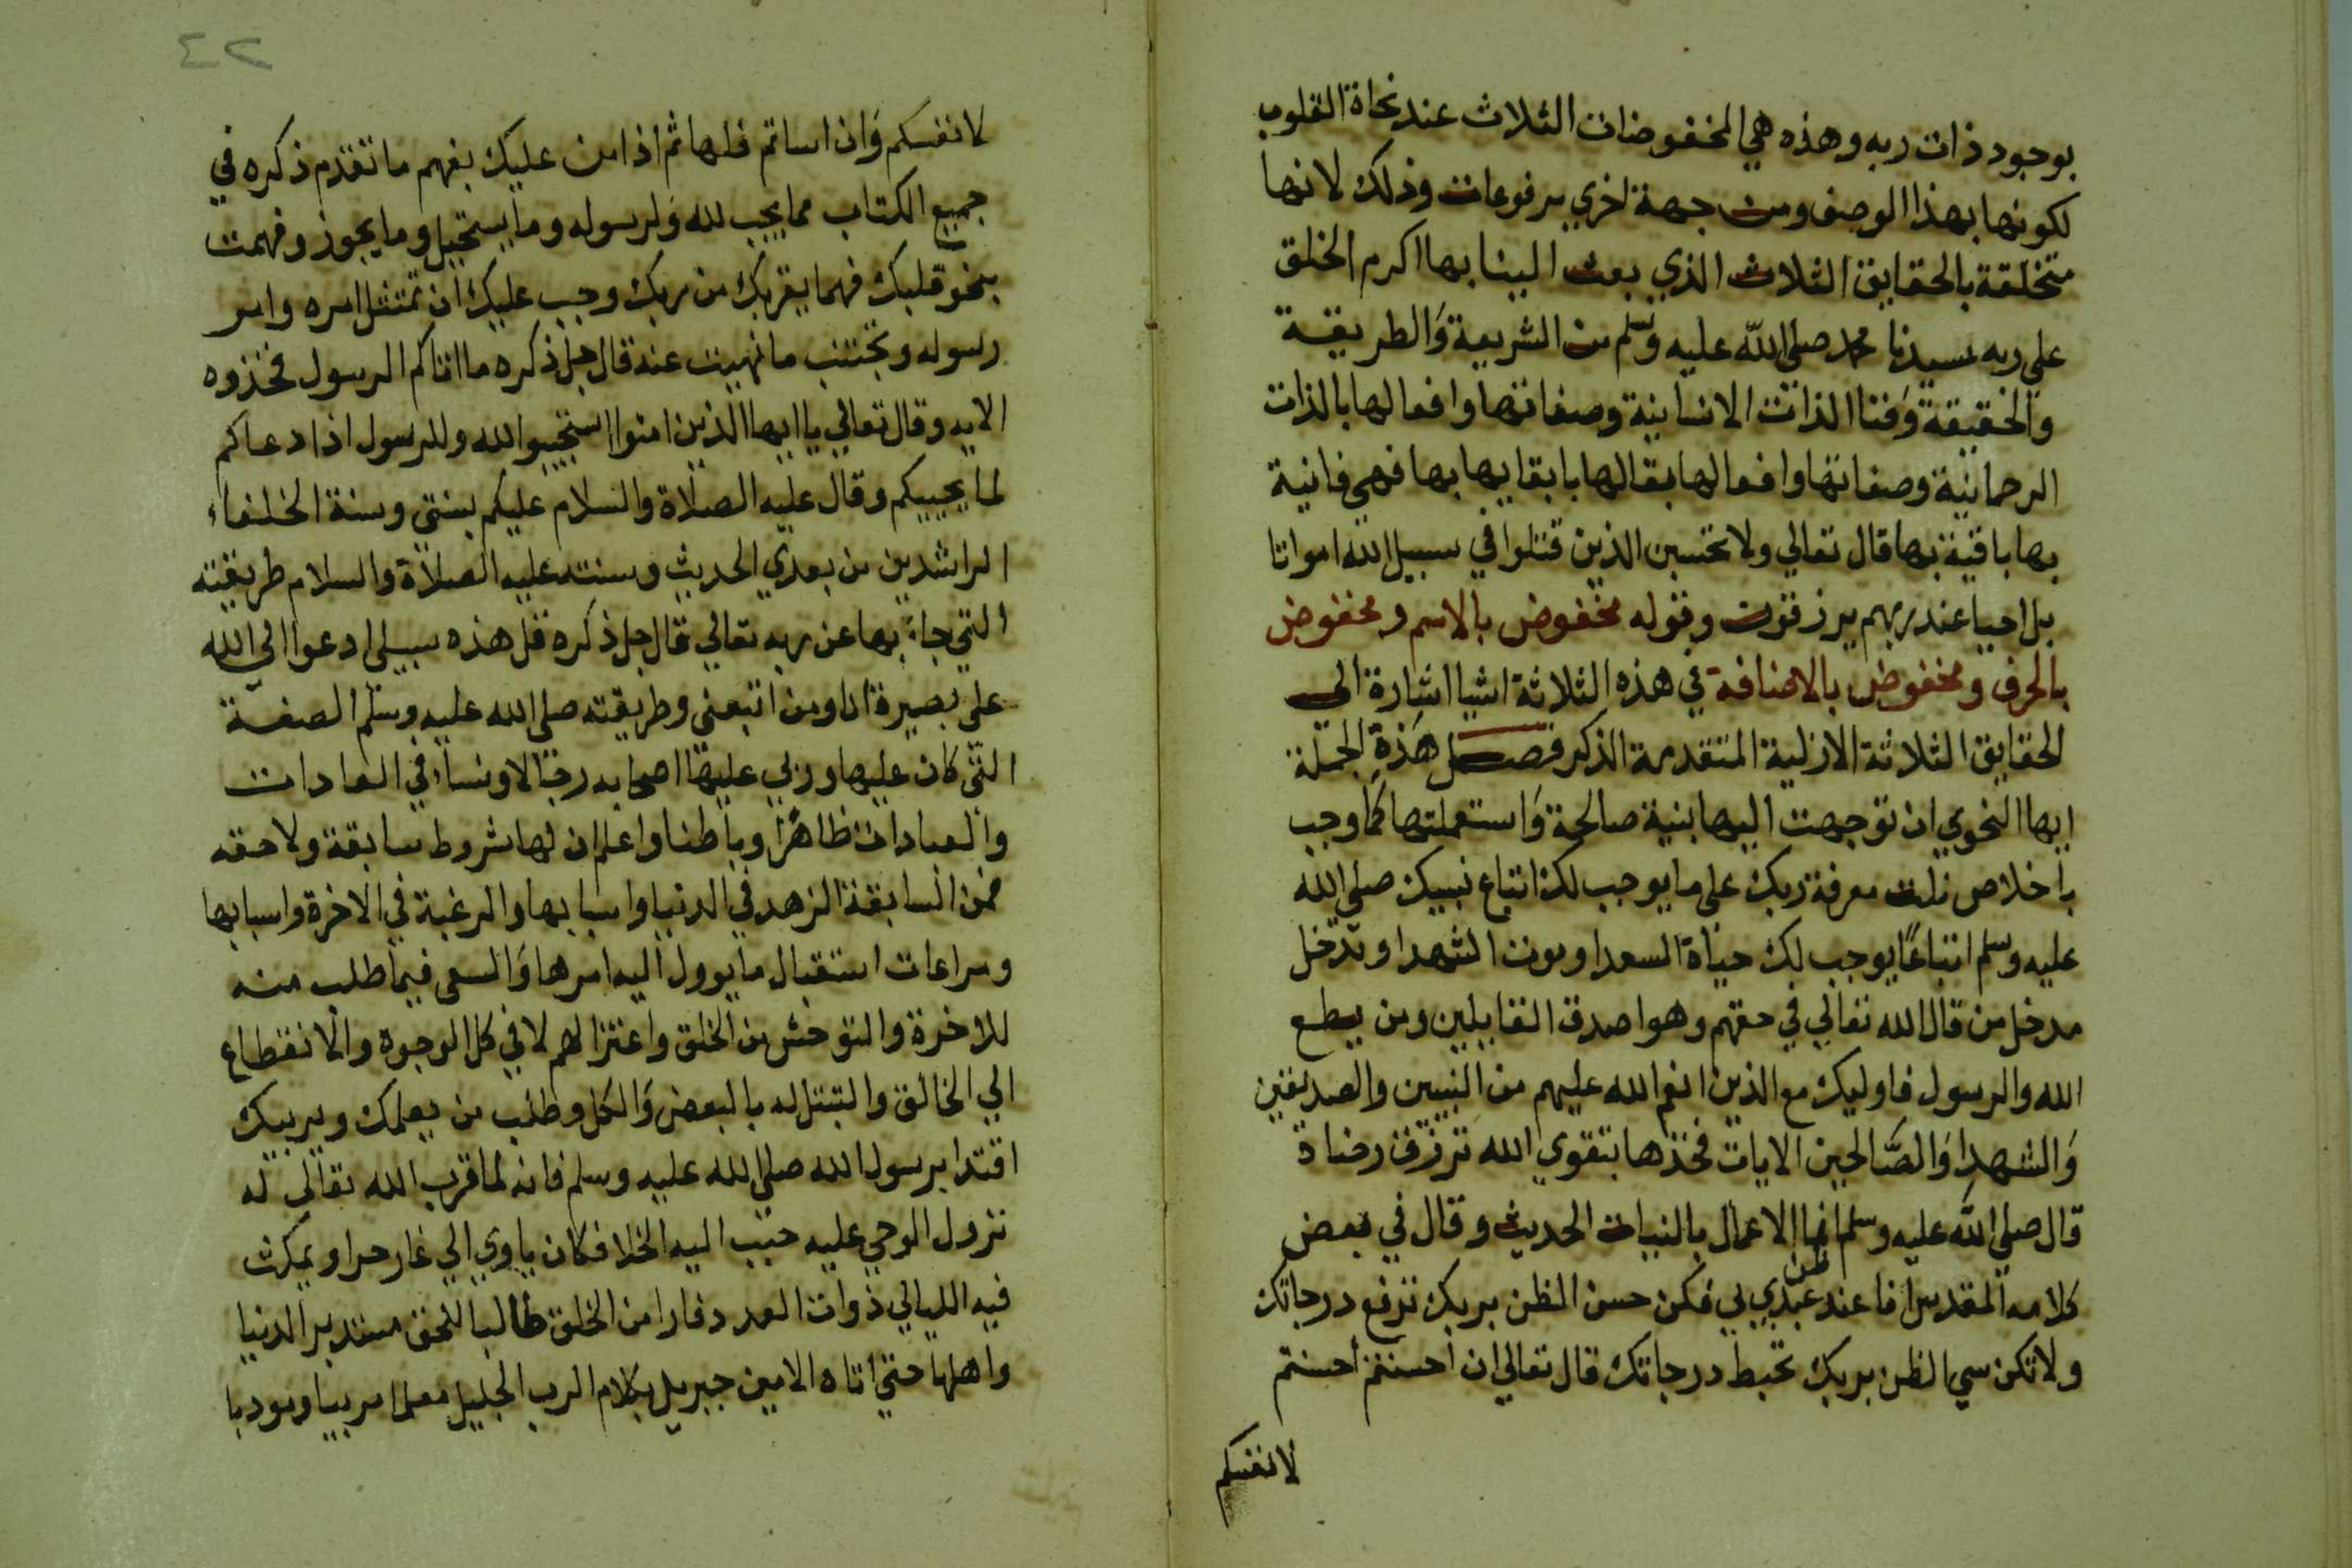 بوجود ذات ربه وهذه هي المخفوضات الثلاث عند نحاة القلوب
لكونها بهذا الوصف ومن جهة اخري مرفوعات وذلك لانها
متخلقة بالحقايق الثلاث الذي بعث الينا بها اكرم الخلق
علي ربه سيدنا محمد صلي الله عليه وسلم من الشريعة والطريقة
والحقيقة وفنا الذات الانسانية وصفاتها وافعالها بالذات
الرحمانية وصفاتها وافعالها بقالها بابقايها بها فهي فانية
بها باقية بها قال تعالي ولا تحسبن الذين قتلوا في سبيل الله امواتا
بل احيا عند ربهم يرزقون وقوله مخفوض بالاسم ومخفوض
بالحرف ومخفوض بالاضافة في هذه الثلاثة اشيا اشارة الى
الحقايق الثلاثة الازلية المتقدمة الذكر فصل هذة الجملة
ايها النحوي ان توجهت اليها بنية صالحة واستعملتها كما وجب
باخلاص نلت معرفة ربك على ما يوجب لك اتباع نبيك صلي الله
عليه وسلم اتباعًا يوجب لك حياة السعدا وموت الشهدا وتدخل
مدخل من قال الله تعالي في حقهم وهو اصدق القايلين ومن يطع
الله والرسول فاوليك مع الذين انعم الله عليهم من النبيين والصديقين
والشهدا والصَّالحين الايات فخذها بتقوي الله ترزق رضاه
قال صلي الله عليه وسلم انما الاعمال بالنيات الحديث وقال في بعض
كلامه المقدس انا عند ظن عبدي بي فكن حسن الظن بربك ترفع درجاتك
ولا تكن سي الظن بربك تحبط درجاتك قال تعالي ان احسنتم احسنتم
لانفسكم
٤٢
لانفسكم وان اساتم فلها ثم اذا من عليك بفهم ما تقدم ذكره في
جميع الكتاب مما يجب لله ولرسوله وما يستحيل وما يجوز وفهمت
بنحو قلبك فهما يقربك من ربك وجب عليك ان تمتثل امره وامر
رسوله وتجتنب ما نهيت عنه قال جل ذكره ما اتاكم الرسول فخذوه
الايه وقال تعالي يا ايها الذين امنوا استجيبوا لله وللرسول اذا دعاكم
لما يحييكم وقال عليه الصلاة والسلام عليكم بسنتي وسنة الخلفاء
الراشدين من بعدي الحديث وسنته عليه الصلاة والسلام طريقته
التي جاء بها عن ربه تعالي قال جل ذكره قل هذه سبيلي ادعوا الي الله
علي بصيرة انا ومن اتبعني وطريقته صلي الله عليه وسلم الصفة
التي كان عليها وربي عليها اصحابه رجالا ونساء في العادات
والعبادات ظاهرا وباطنا واعلم ان لها شروط سابقة ولاحقه
فمن السابقة الزهد في الدنيا واسبابها والرغبة في الاخرة واسبابها
ومراعات استقبال ما يوول اليه امرها والسعي فيما طلب منه
للاخرة والتوحش من الخلق واعتزالهم لا في كل الوجوه والانقطاع
الي الخالق والتبتل له بالبعض والكل وطلب من يعلمك ويربيك
اقتدا برسول الله صلي الله عليه وسلم فانه لما قرب الله تعالي له
نزول الوحي عليه حبب اليه الخلا فكان ياوي الي غار حرا ويمكث
فيه الليالي ذوات العدد فارا من الخلق طالبا للحق مستدبر الدنيا
واهلها حتي اتاه الامين جبريل بكلام الرب الجليل معلما مربيا ومودبا